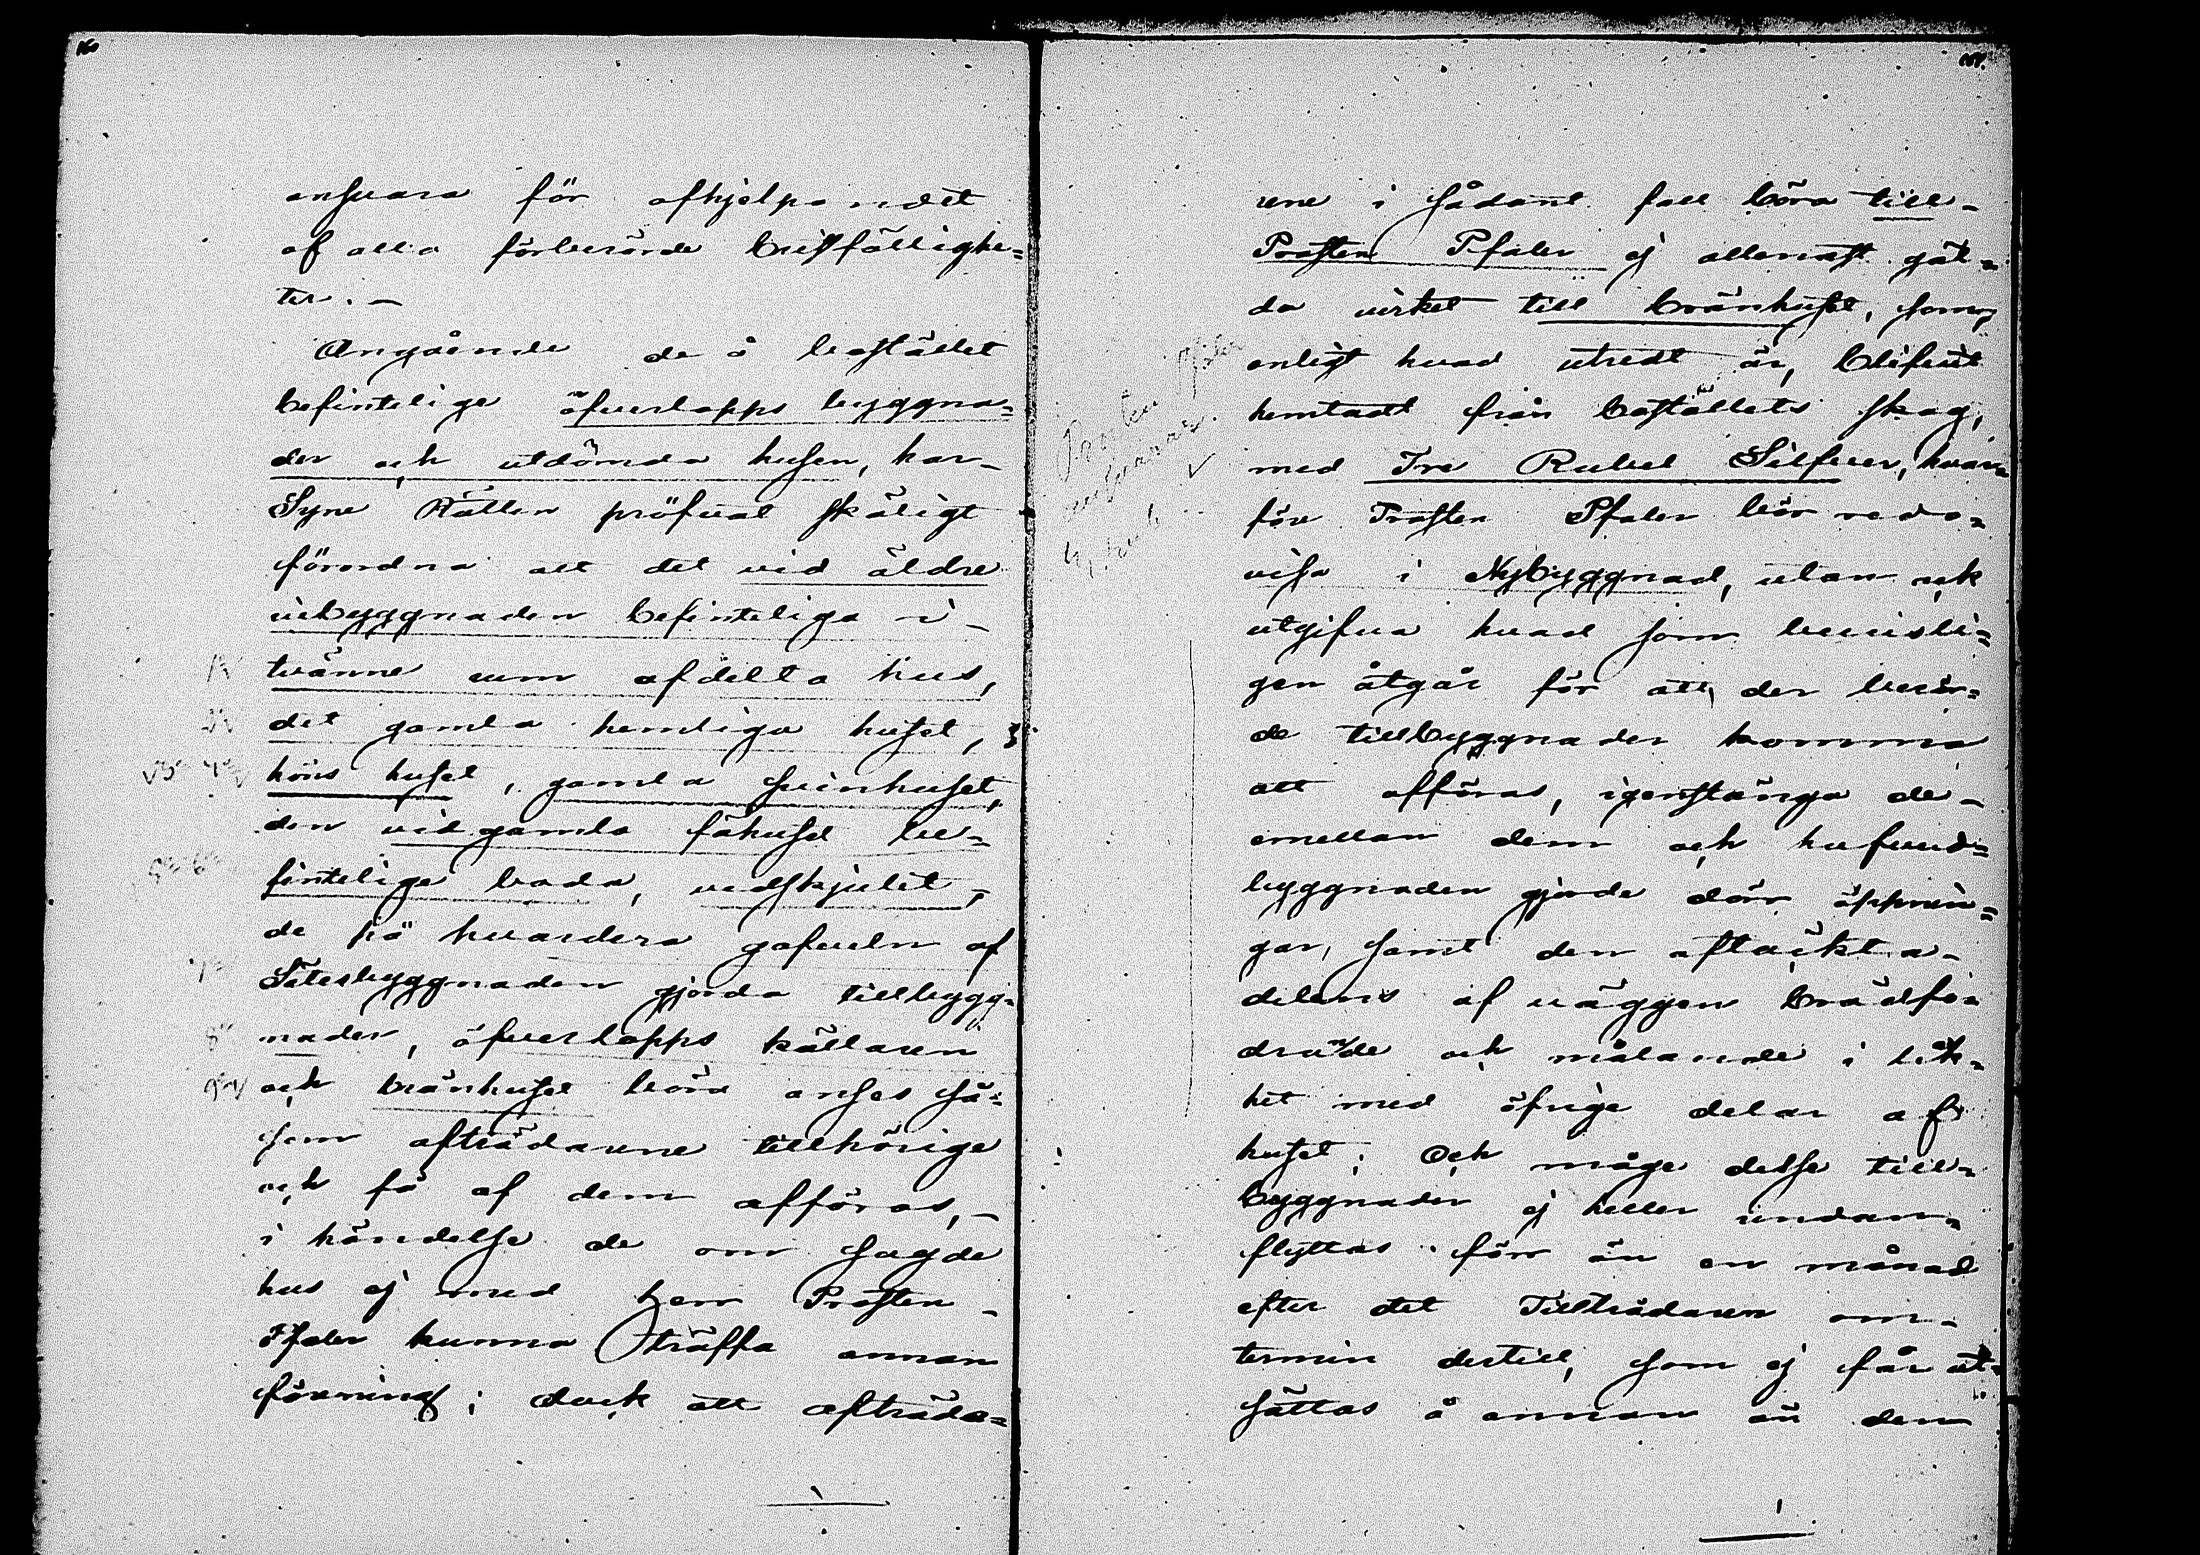 160
ansvara för afhjelpandet
af alla förberörde bristfällighe=
ter. —
Angående de å bostället
befintelige öfverlopps byggna=
der och utdömda husen, har
Syne Rätten pröfvat skäligt
förordna att det vid äldre
ria byggnaden befinteliga i
tvänne rum afdelta hus,
det gamla hemliga huset,
höns huset, gamla svinhuset,
den vid gamla fähuset be=
fintelige boda, vedskjulet,
de på hvardera gafveln af
Sätesbyggnaden gjorda tillbygg=
nader, öfverlopps källaren
och bränhuset böra anses så=
som afträdarene tillhörige
och få af dem afföras, –
i händelse de om sagde
hus ej med Herr Prosten –
Pfaler kunna träffa annan
förening; dock att afträda=
161.
rene i sådant fall böra till –
Prosten Pfaler ej allenast gäl=
da virket till bränhuset, som,
enligt hvad utredt är, blifvit
hemtadt från boställets skog,
med Tre Rubel Silfver, hvar=
före Prosten Pfaler bör redo=
visa i Nybyggnad, utan ock
utgifva hvad som bevisli=
gen åtgår för att de berör=
de tillbyggnader komma
att afföras, igenstänga de –
emellan dem och hufvud=
byggnaden gjorde dörr öppnin=
gar, samt den aftäckta –
delens af väggen brädfo=
drande och målande i lik=
het med öfrige delar af
huset; Och måge desse till=
byggnader ej heller undan=
flyttas förr än en månad
efter det Tillträdaren om –
termin dertill, som ej får ut=
sättas å annan än den